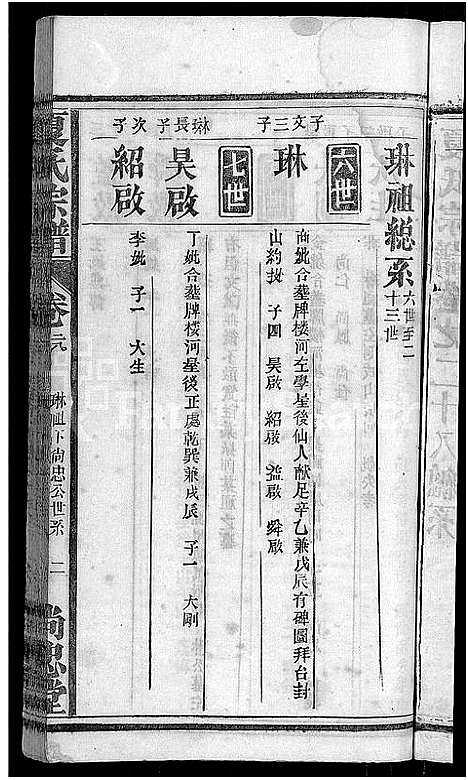 琳祖總系 六世至二十三世
六世
子文三子
琳
尚妣合塟牌楼河左學星後仙人献足辛乙兼戊辰有碑圖拜台封
山約批 子四 昊啟 紹啟 益啟 舜啟
七世
琳長子
昊啟
丁妣合塟牌楼河星後正處乾巽兼戌辰 子一 大剛
次子
紹啟
李妣 子一 大生
夏氏宗譜
琳祖下尚忠公世系
二
尚忠堂